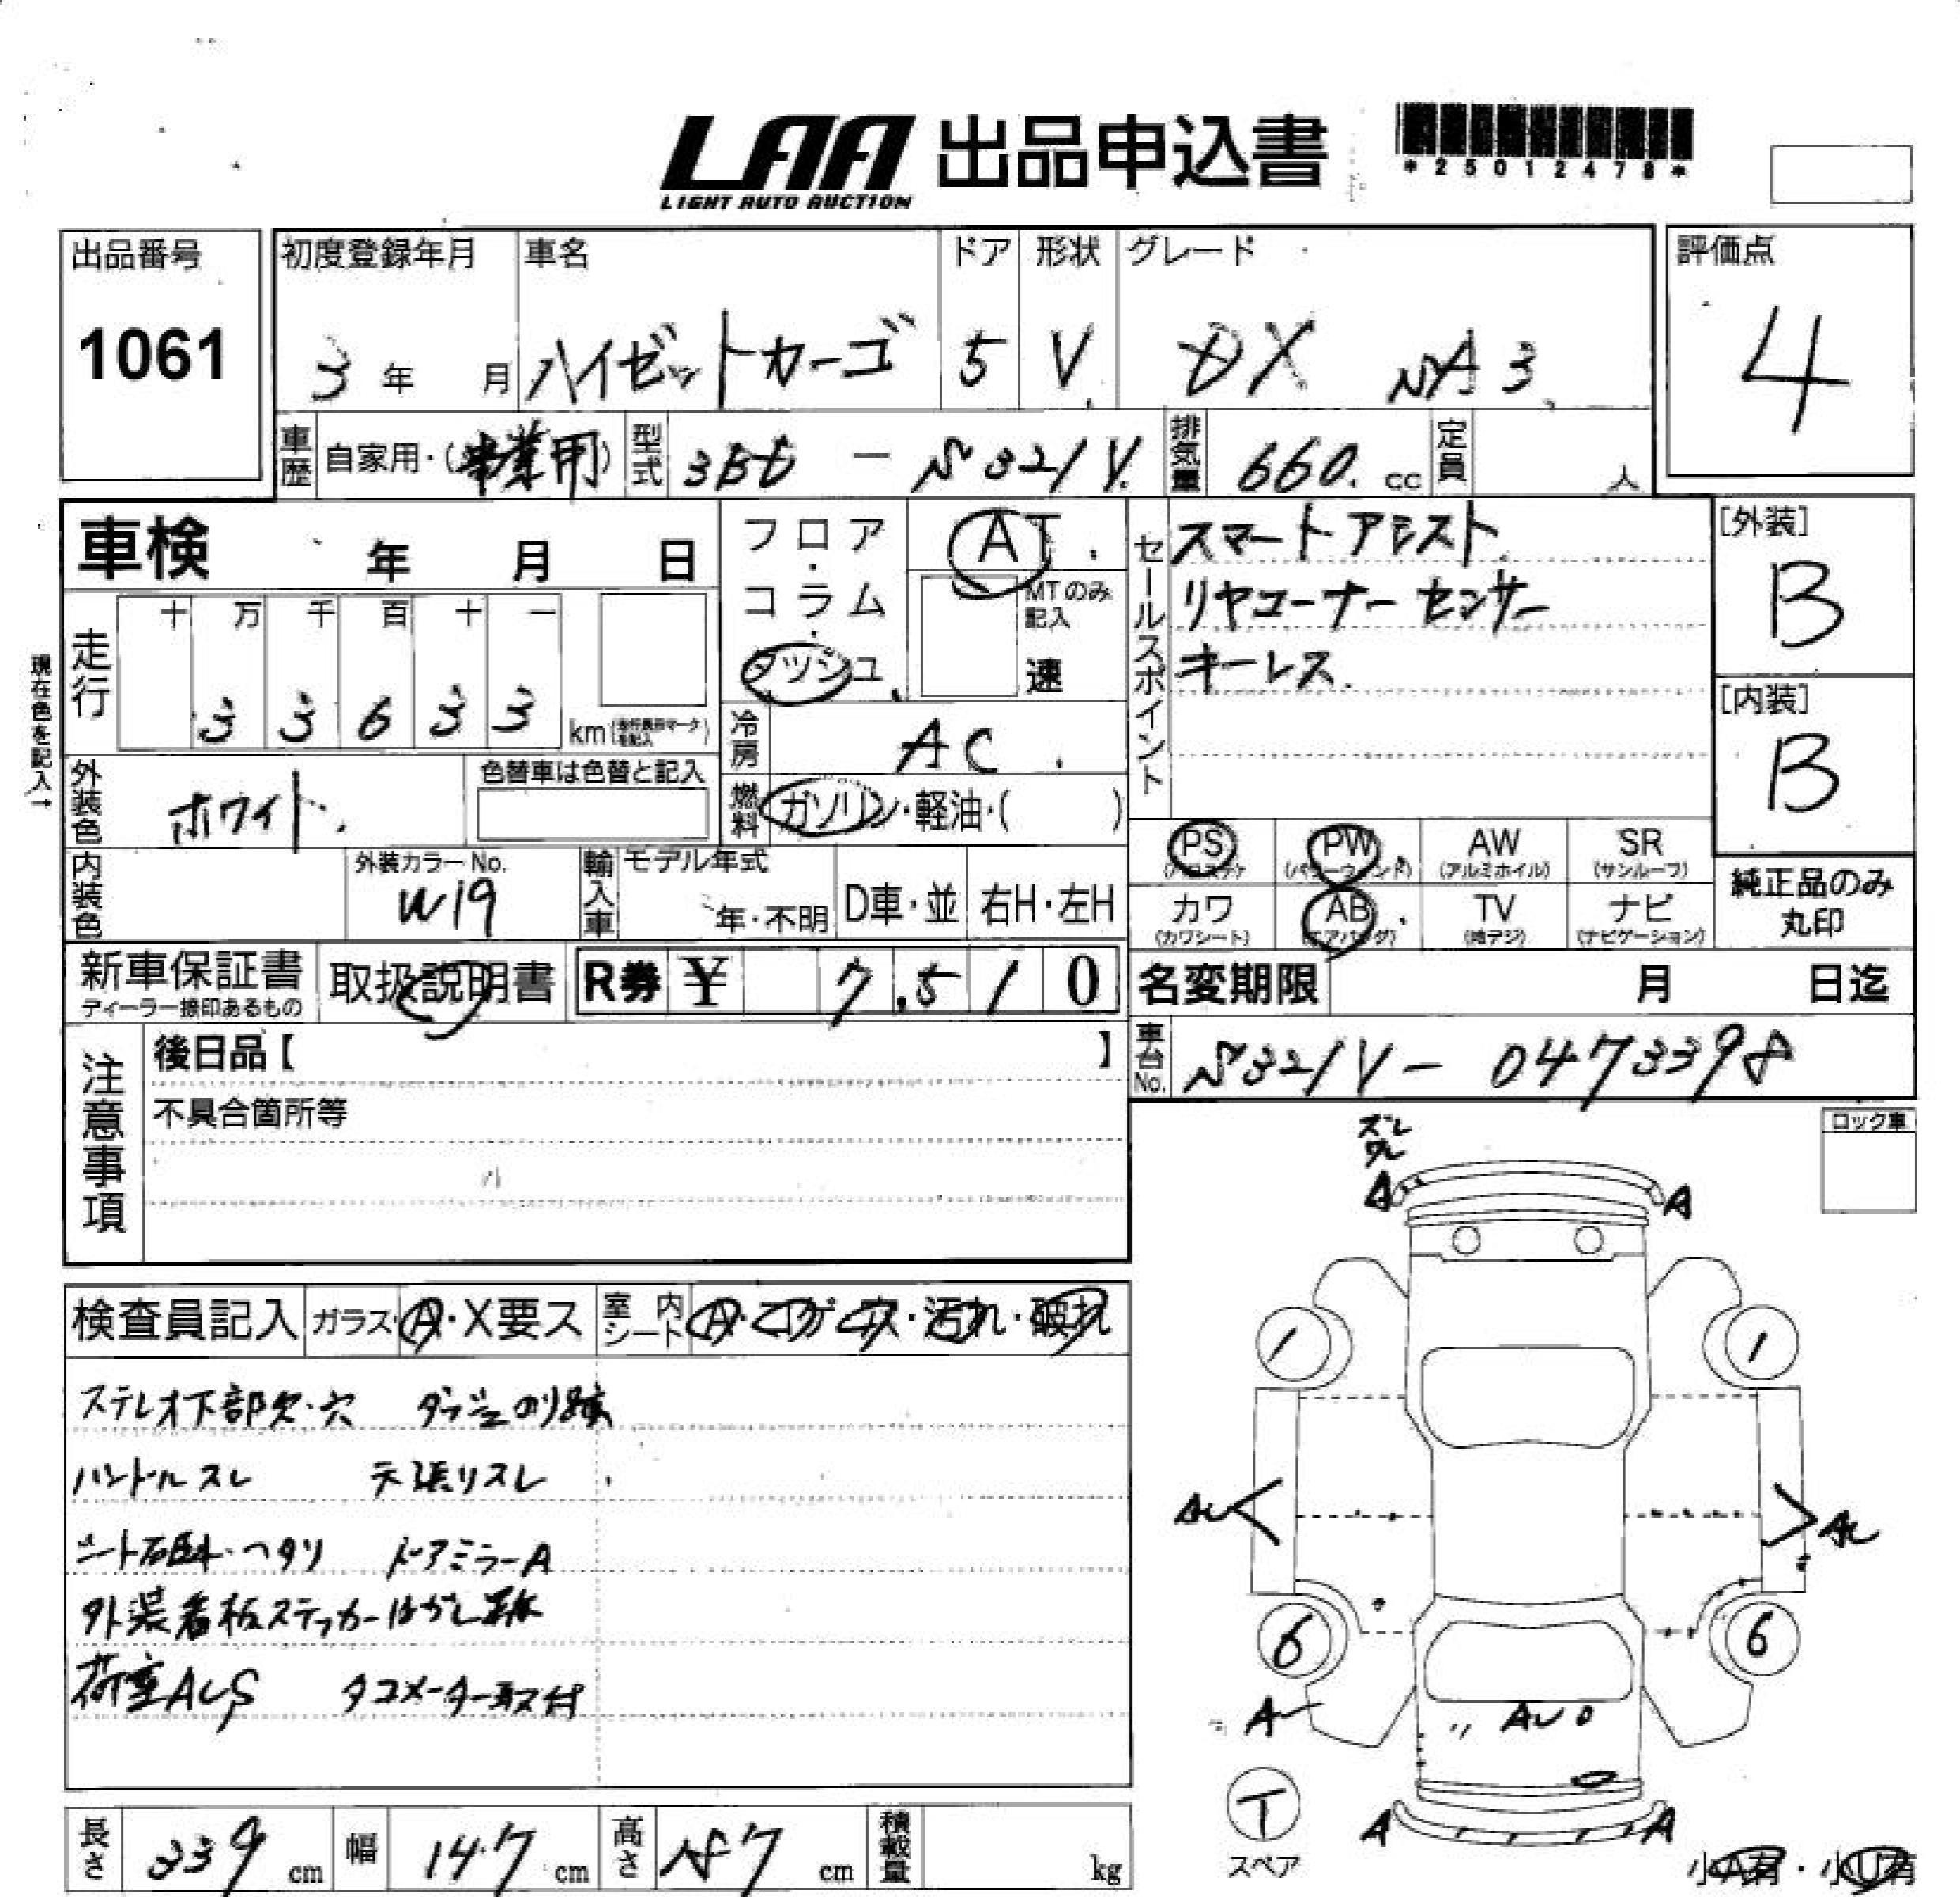 LAA 出品申込書
LIGHT AUTO AUCTION
*25012478*
出品番号
1061
初度登録年月
3年 月
車名
ハイゼットカーゴ
ドア
5
形状
V
グレード
DX SA3
評価点
4
車歴 自家用・(事業用)
型式 3BD - S321V
排気量 660. cc
定員 人
車検 年 月 日
フロア・コラム・ダッシュ
AT
MTのみ記入
速
セールスポイント
スマートアシスト
リヤコーナーセンサー
キーレス
[外装]
B
[内装]
B
現在色を記入→
走行
十 万 千 百 十 一
3 3 6 3 3 km (走行表示マークを記入)
冷房 AC
燃料 ガソリン・軽油・( )
外装色 ホワイト
色替車は色替と記入
内装色
外装カラーNo.
W19
輸入車
モデル年式
年・不明
D車・並
右H・左H
PS (パワステ)
PW (パワーウィンド)
AW (アルミホイル)
SR (サンルーフ)
カワ (カワシート)
AB (エアバッグ)
TV (地デジ)
ナビ (ナビゲーション)
純正品のみ
丸印
新車保証書
ディーラー捺印あるもの
取扱説明書
R券 ¥ 7,510
名変期限 月 日迄
注意事項
後日品【 】
不具合箇所等
車台No. S321V- 0473398
ロック車
検査員記入 ガラス・A・X要ス
室内シート A・コゲ・穴・汚れ・破れ
ステレオ下部欠・穴 ダッシュのり跡
ハンドルスレ 天張リスレ
シート ヘタリ ドアミラーA
外装看板ステッカーはがし跡
荷室AUS タコメーター取付
ズレ
ワレ
A A
1 1
AU AU
6 6
A
AU
A A
T
スペア
小A有・小U有
長さ 339 cm
幅 147 cm
高さ 187 cm
積載量 kg